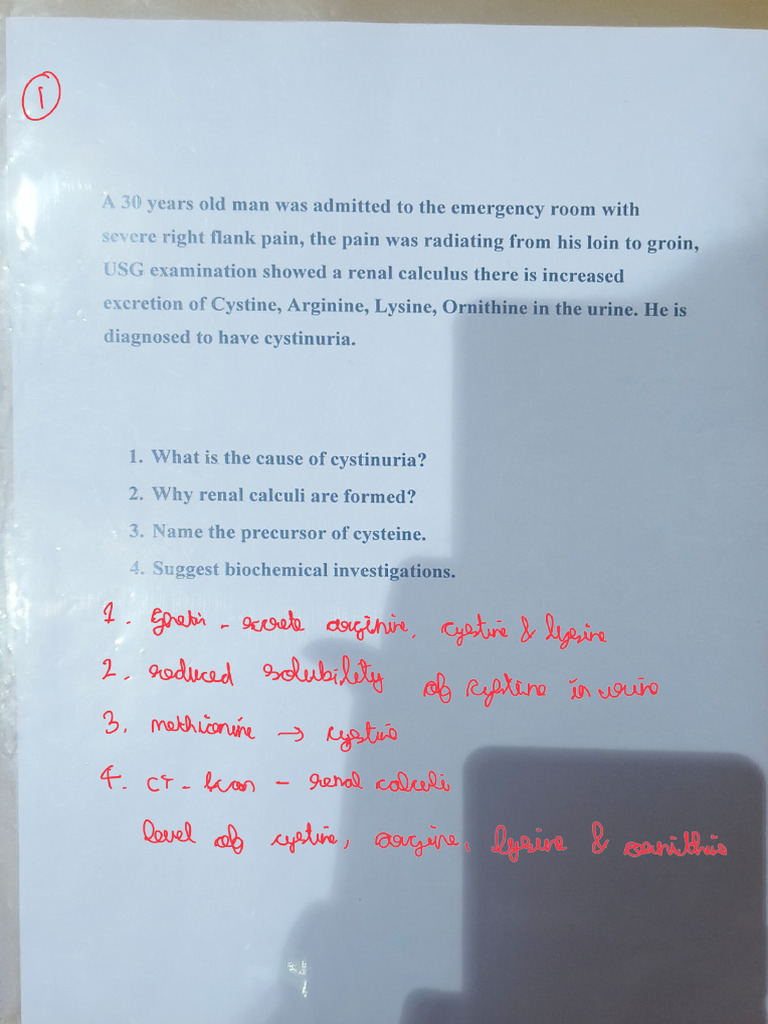 1
A 30 years old man was admitted to the emergency room with
severe right flank pain, the pain was radiating from his loin to groin,
USG examination showed a renal calculus there is increased
excretion of Cystine, Arginine, Lysine, Ornithine in the urine. He is
diagnosed to have cystinuria.
1. What is the cause of cystinuria?
2. Why renal calculi are formed?
3. Name the precursor of cysteine.
4. Suggest biochemical investigations.
1. - arginine, cystine & lysine
2. reduced solubility of cystine in urine
3. methionine →
4. CT - Scan - renal calculi
level of cystine, argine, lysine &